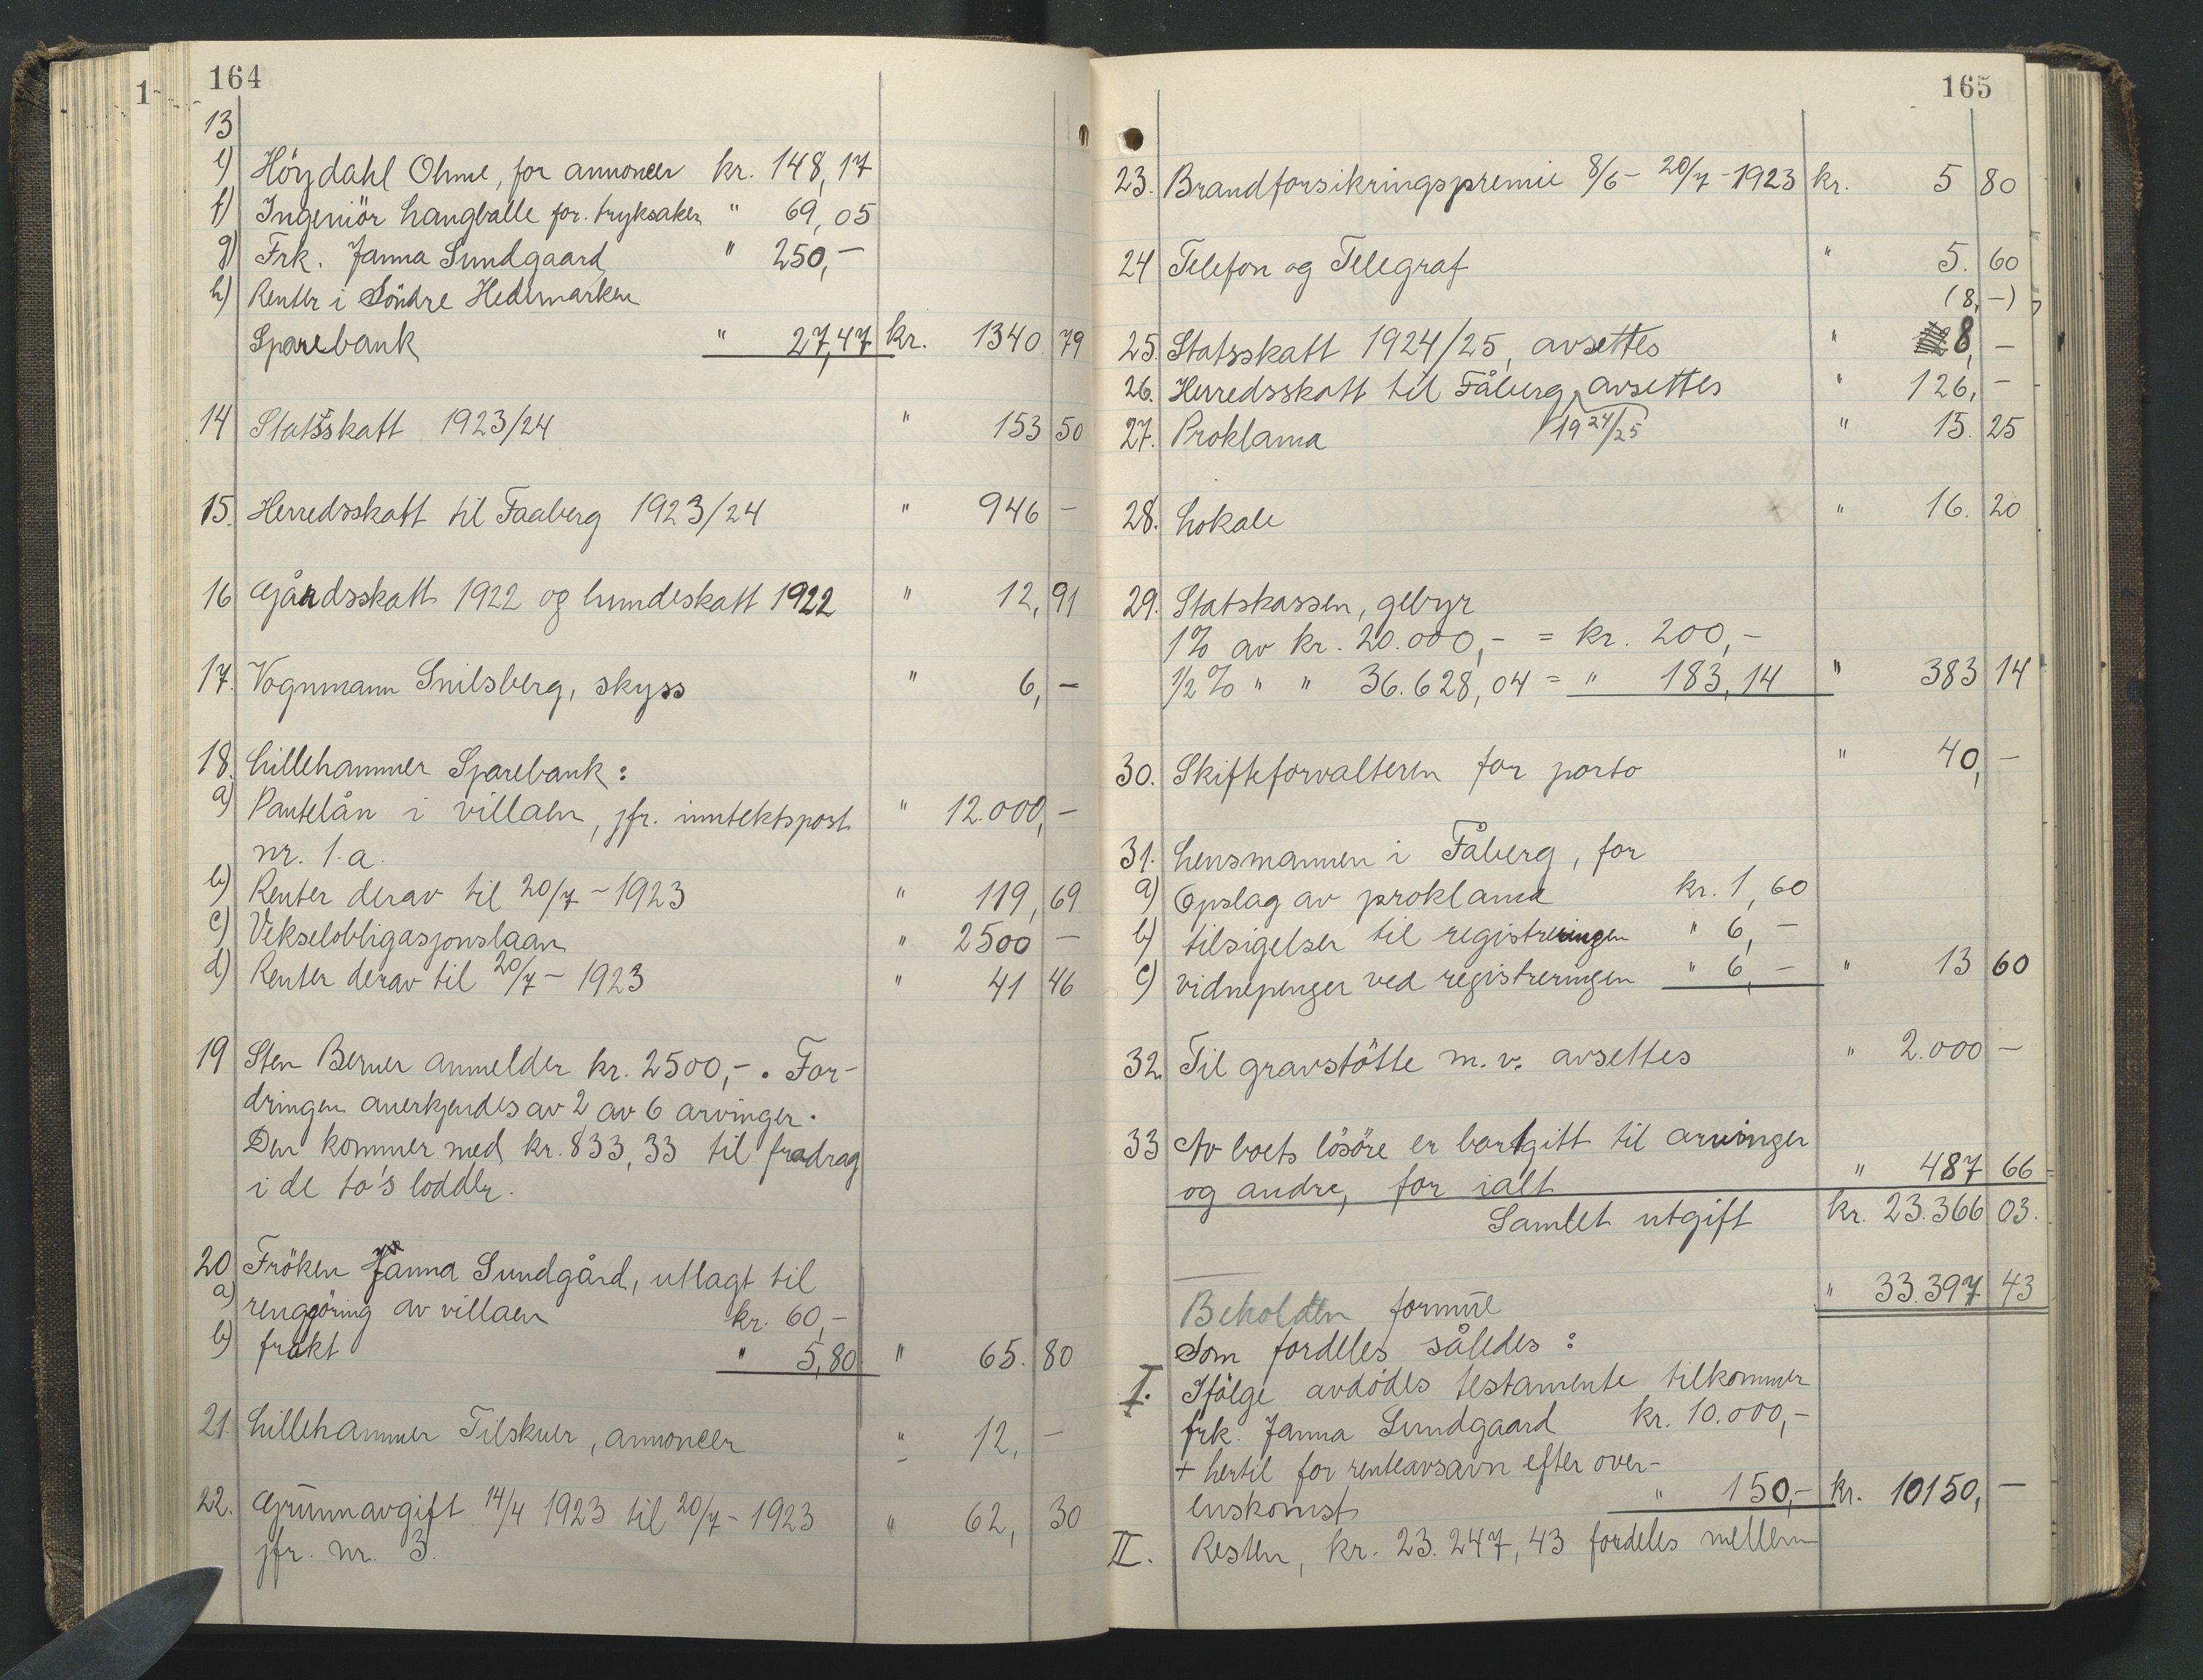 164
13
e) Höydahl Ohme, for annoncer kr. 148,17
f) Ingeniör Langballe for tryksaker " 69,05
g) Frk. Janna Sundgaard " 250,-
h) Renter i Söndre Hedemarken
Sparebank " 27,47 kr. 1340. 79
14 Statsskatt 1923/24 " 153 50
15. Herredsskatt til Faaberg 1923/24 " 946 -
16 Gårdsskatt 1922 og hundeskatt 1922 " 12, 91
17. Vognmann Snilsberg, skyss " 6, -
18. Lillehammer Sparebank:
a) Pantelån i villaen, jfr. inntektspost " 12.000, -
nr. 1.a.
b) Renter derav til 20/7 - 1923 " 119, 69
c) Vekselobligasjonslaan " 2500 -
d) Renter derav til 20/7 - 1923 " 41 46
19 Sten Berner anmelder kr. 2500,-. For-
dringen anerkjendes av 2 av 6 arvinger.
Den kommer med kr. 833,33 til fradrag
i de to's lodder.
20 Fröken Janna Sundgård, utlagt til
a) rengjöring av villaen kr. 60,-
b) frakt " 5,80 " 65. 80
21. Lillehammer Tilskuer, annoncer " 12, -
22. Grunnavgift 14/4 1923 til 20/7 - 1923 " 62, 30
jfr. nr. 3.
165
23. Brandforsikringspremie 8/6 - 20/7 - 1923 kr. 5 80
24 Telefon og Telegraf " 5. 60
(8,-)
25. Statsskatt 1924/25, avsettes " 8, -
26. Herredsskatt til Fåberg, avsettes " 126, -
27. Proklama 1924/25 " 15. 25
28. Lokale " 16. 20
29. Statskassen, gebyr
1% av kr. 20.000,- = kr. 200,-
1/2% " " 36.628,04 = " 183,14 " 383 14
30. Skifteforvalteren for porto " 40, -
31. Lensmannen i Fåberg, for
a) Opslag av proklama kr. 1,60
b) tilsigelser til registreringen " 6,-
c) vidnepenger ved registreringen " 6,- " 13 60
32. Til gravstötte m.v. avsettes " 2.000 -
33 Av boets lösöre er bortgitt til arvinger
og andre, for ialt " 487 66
Samlet utgift kr. 23.366 03.
Beholden formue " 33.397 43
Som fordeles således:
I. Ifölge avdödes testamente tilkommer
frk. Janna Sundgaard kr. 10.000,-
+ hertil for renteavsavn efter over-
enskomst " 150,- kr. 10150, -
II. Resten, kr. 23.247,43 fordeles mellem